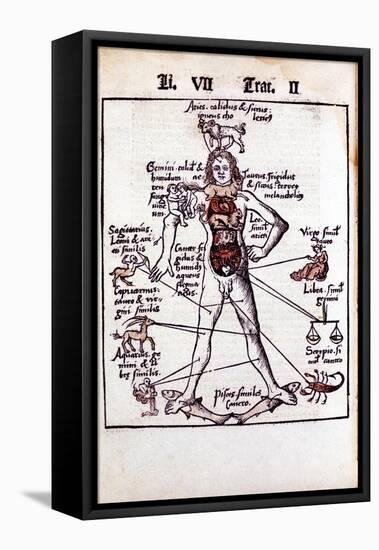 Li. VII Trac. II
Aries. calidus & siccus:
igneus cho
lericus
Gemini. calid⁹ &
humidum ae
reu
sangu
ineum
Taurus. frigidus
& siccus: terreo
melancholicus
Leo.
simil.
arieti
Virgo simil⁹
tauro
Sagittarius.
Leoni & arie
ti similis
Cancer fri
gidus &
humid⁹
aqueus
flegma
ticus
Capricornus:
tauro & vir
gini similis
Libra. simil⁹
gemini
Aquarius. ge
mini & li
bre similis.
Scorpio. si
mil⁹ cancro
Pisces. similes
Cancro.